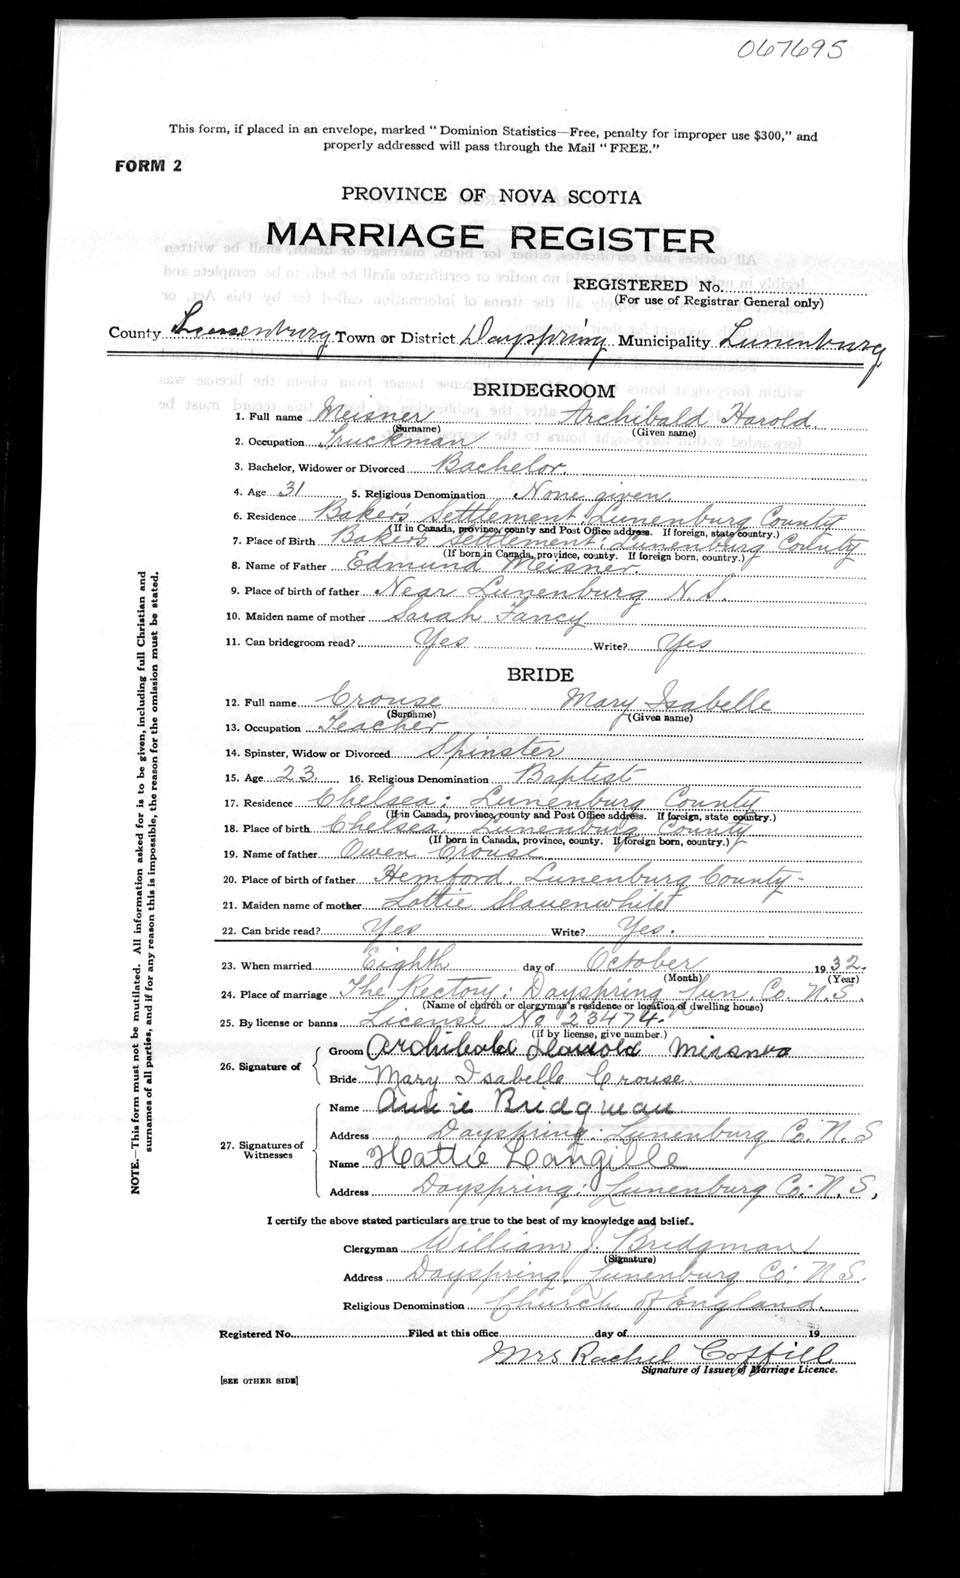 067695
This form, if placed in an envelope, marked "Dominion Statistics—Free, penalty for improper use $300," and
properly addressed will pass through the Mail "FREE."
FORM 2
PROVINCE OF NOVA SCOTIA
MARRIAGE REGISTER
REGISTERED No.
(For use of Registrar General only)
County Lunenburg Town or District Dayspring Municipality Lunenburg
BRIDEGROOM
1. Full name Meisner Archibald Harold.
(Surname) (Given name)
2. Occupation Truckman
3. Bachelor, Widower or Divorced Bachelor.
4. Age 31 5. Religious Denomination None given
6. Residence Baker's Settlement, Lunenburg County
(If in Canada, province, county and Post Office address. If foreign, state country.)
7. Place of Birth Baker's Settlement; Lunenburg County
(If born in Canada, province, county. If foreign born, country.)
8. Name of Father Edmund Meisner.
9. Place of birth of father Near Lunenburg N.S.
10. Maiden name of mother Sarah Fancy
11. Can bridegroom read? Yes Write? Yes
BRIDE
12. Full name Crouse Mary Isabelle
(Surname) (Given name)
13. Occupation Teacher
14. Spinster, Widow or Divorced Spinster
15. Age 23 16. Religious Denomination Baptist
17. Residence Chelsea; Lunenburg County
(If in Canada, province, county and Post Office address. If foreign, state country.)
18. Place of birth Chelsea, Lunenburg County
(If born in Canada, province, county. If foreign born, country.)
19. Name of father Owen Crouse
20. Place of birth of father Hemford, Lunenburg County-
21. Maiden name of mother Lottie Slauenwhite
22. Can bride read? Yes Write? Yes.
23. When married Eighth day of October 1932.
(Month) (Year)
24. Place of marriage The Rectory; Dayspring Lun. Co. N.S.
(Name of church or clergyman's residence or location of dwelling house)
25. By license or banns License No 23474.
(If by license, give number.)
26. Signature of
Groom Archibald Harold Meisner
Bride Mary Isabelle Crouse.
27. Signatures of Witnesses
Name Annie Bridgman
Address Dayspring; Lunenburg Co. N.S
Name Hattie Langille
Address Dayspring; Lunenburg Co. N.S,
I certify the above stated particulars are true to the best of my knowledge and belief.
Clergyman William J. Bridgman
(Signature)
Address Dayspring, Lunenburg Co. N.S.
Religious Denomination Church of England.
Registered No. Filed at this office day of 19
Mrs Rachel Coffill
Signature of Issuer of Marriage Licence.
[SEE OTHER SIDE]
NOTE.—This form must not be mutilated. All information asked for is to be given, including full Christian and
surnames of all parties, and if for any reason this is impossible, the reason for the omission must be stated.